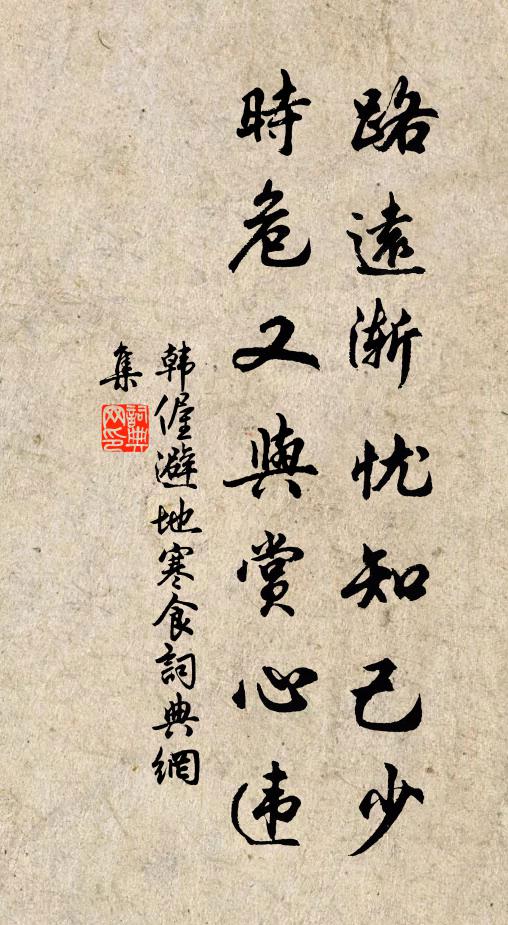 路遠渐忧知己少
時危又與賞心违
韩偓避地寒食詞典網
集
詞典
网印